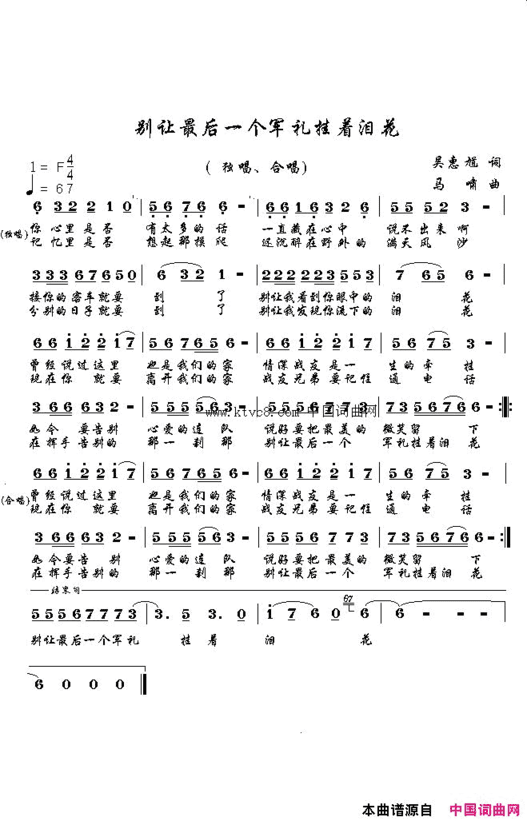 别让最后一个军礼挂着泪花
1= F 4/4
(独唱、合唱)
吴惠尪 词
♩= 67
马 啸 曲
6 3 2 2 1 0 | 5 6 7 6 6 - | 6 6 1 6 5 6 - | 5 5 5 2 3 -
(独唱) 你心里是否 有太多的话 一直藏在心中 说不出来啊
记忆里是否 想起那摸爬 还沉醉在野外的 满天风沙
3 3 3 3 6 7 6 5 0 | 6 3 2 1 - | 2 2 2 2 2 3 5 5 3 | 7 6 5 6 -
接你的客车就要 到了 别让我看到你眼中的 泪花
分别的日子就要 到了 别让我发现你流下的 泪花
6 6 1 2 2 1 7 | 5 6 7 6 5 6 - | 6 6 1 2 2 1 7 | 5 6 7 5 3 -
曾经说过这里 也是我们的家 情深战友是一 生的牵挂
现在你 就要 离开我们的家 战友兄弟要记住 通电话
3 6 6 6 3 2 - | 5 5 5 5 5 6 3 -
如今 要告别 心爱的连队 说好要把最美的 微笑留 下
在挥手告别的 那一刹那 别让最后一个 军礼挂着泪花
www.ktvc8.com 中国词曲网
6 6 1 2 2 1 7 | 5 6 7 6 5 6 - | 6 6 1 2 2 1 7 | 5 6 7 5 3 -
(合唱) 曾经说过这里 也是我们的家 情深战友是一 生的牵挂
现在你 就要 离开我们的家 战友兄弟要记住 通电话
3 6 6 6 3 2 - | 5 5 5 5 5 6 3 - | 5 5 5 5 6 7 7 7 | 7 3 5 6 7 6 6 -
如今要告别 心爱的连队 说好要把最美的 微笑留 下
在挥手告别的 那一刹那 别让最后一个 军礼挂着泪花
结束句
5 5 5 6 7 7 7 3 | 3. 5 3. 0 | 1 7 6 0 6 | 6 - - -
别让最后一个军礼 挂着 泪 花
6 0 0 0
本曲谱源自 中国词曲网